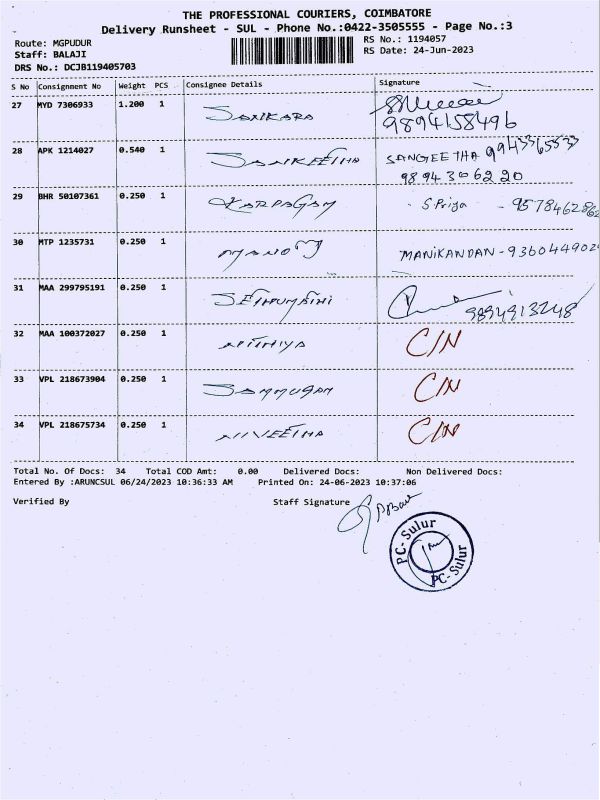 THE PROFESSIONAL COURIERS, COIMBATORE
Delivery Runsheet - SUL - Phone No.:0422-3505555 - Page No.:3
Route: MGPUDUR
RS No.: 1194057
Staff: BALAJI
RS Date: 24-Jun-2023
DRS No.: DCJB119405703
S No Consignment No Weight PCS Consignee Details Signature
27 MYD 7306933 1.200 1 SANKARA
9894158496
28 APK 1214027 0.540 1 SANGEETHA 9943365533
9894306220
29 BHR 50107361 0.250 1 KARPAGAM S Priya - 9578462862
30 MTP 1235731 0.250 1 MANOJ MANIKANDAN - 936044902
31 MAA 299795191 0.250 1
9894913248
32 MAA 100372027 0.250 1 NITHIYA C/N
33 VPL 218673904 0.250 1 C/N
34 VPL 218675734 0.250 1 NIVEETHA C/N
Total No. Of Docs: 34 Total COD Amt: 0.00 Delivered Docs: Non Delivered Docs:
Entered By :ARUNCSUL 06/24/2023 10:36:33 AM Printed On: 24-06-2023 10:37:06
Verified By Staff Signature
PC-Sulur
PC-Sulur